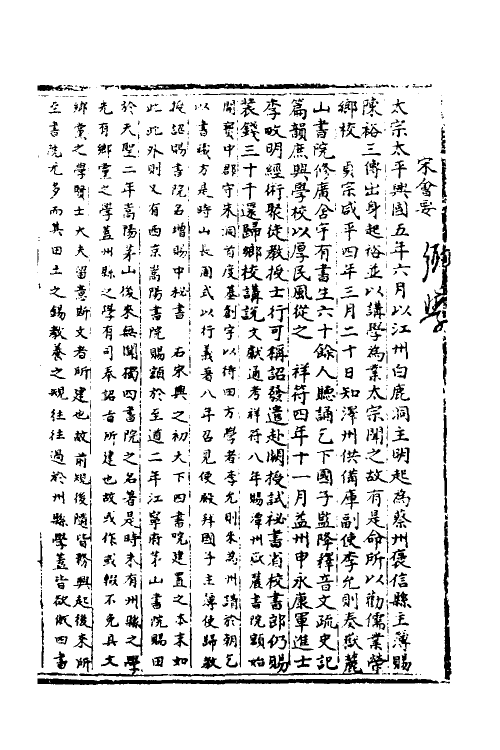 宋會要
太宗太平興國五年六月以江州白鹿洞主明起為蔡州褒信縣主簿賜
陳裕三傳出身起裕並以講學為業太宗聞之故有是命所以勸儒業榮
鄉校 真宗咸平四年三月二十日知潭州供備庫副使李允則奏嶽麓
山書院修廣舍宇有書生六十餘人聽誦乞下國子監降釋音文疏史記
篇韻庶興學校以厚民風從之 祥符四年十一月益州申永康軍進士
李畋明經術聚徒教授士行可稱詔發遣赴闕授試祕書省校書郎仍賜
裝錢三十千還歸鄉校講說文獻通考祥符八年賜潭州嶽麓書院額始
開寶中郡守朱洞首度基創宇以待四方學者李允則來為州請於朝乞
以書藏方是時山長周式以行義著八年召見便殿拜國子主簿使歸教
授詔賜書院名增賜中祕書 右宋興之初天下四書院建置之本末如
此此外則又有西京嵩陽書院賜額於至道二年江寧府茅山書院賜田
於天聖二年嵩陽茅山後來無聞獨四書院之名著是時未有州縣之學
先有鄉黨之學蓋州縣之學有司奉詔旨所建也故或作或輟不免具文
鄉黨之學賢士大夫留意斯文者所建也故前規後隨皆務興起後來所
至書院尤多而其田土之錫教養之規往往過於州縣學蓋皆欲倣四書